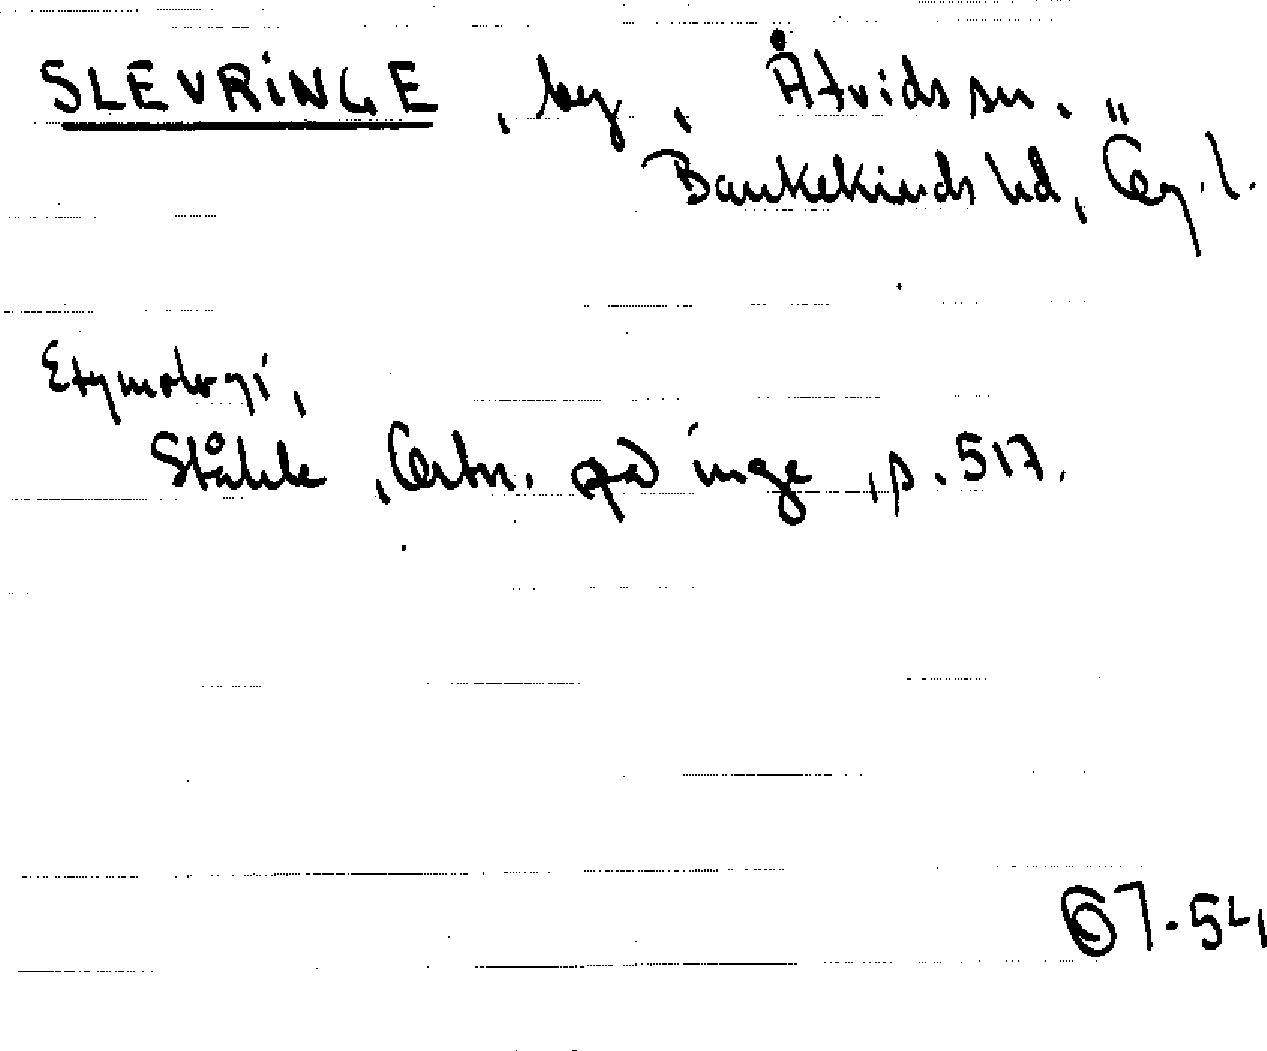 SLEVRINGE, by, Åtvids sn.
Bankekinds hd, Ög. l.
Etymologi,
Ståhle, Ortn. på inge, p. 517.
67-54